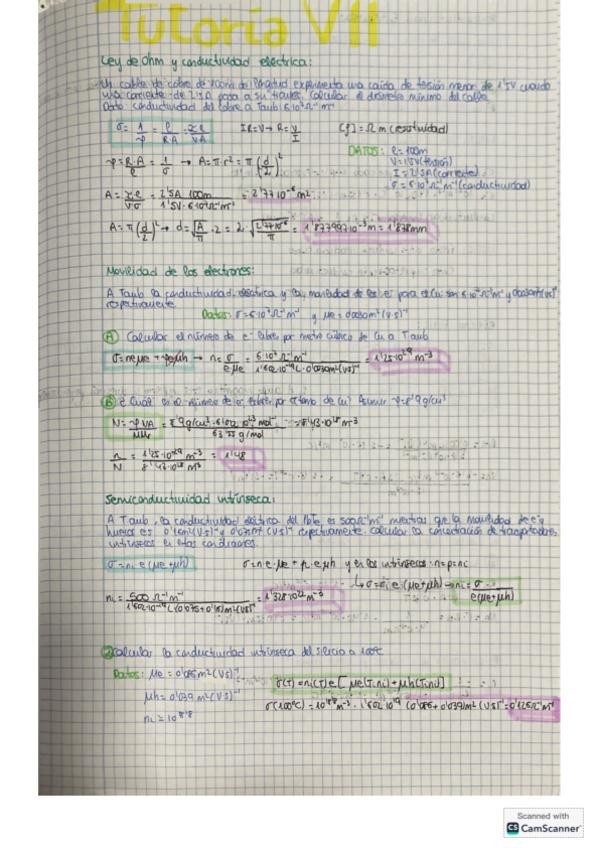 Tutoría VII
Ley de Ohm y conductividad eléctrica:
Un cable de cobre de 100m de longitud experimenta una caída de tensión menor de 1'5V cuando
una corriente de 2'5A pasa a su través. Calcular el diámetro mínimo del cable.
Dato conductividad del cobre a Tamb: 6·10⁷Ω⁻¹m⁻¹
σ = 1/ρ = l/RA = I·l/VA IR=V → R=V/I [ρ] = Ω m (resistividad)
DATOS: l = 100m
V = 1'5V (tensión)
I = 2'5A (corriente)
σ = 6·10⁷Ω⁻¹m⁻¹ (conductividad)
ρ = R·A/l = 1/σ → A = π·r² = π(d/2)²
A = I·l/Vσ = 2'5A 100m / 1'5V·6·10⁷Ω⁻¹m⁻¹ = 2'77·10⁻⁶m²
A = π(d/2)² → d = √(A/π)·2 = 2·√(2'77·10⁻⁶/π) = 1'87799·10⁻³m = 1'878mm
Movilidad de los electrones:
A Tamb la conductividad eléctrica y la movilidad de los e⁻ para el Cu son 6·10⁷Ω⁻¹m⁻¹ y 0'0030m²(VS)⁻¹
respectivamente.
Datos: σ=6·10⁷Ω⁻¹m⁻¹ y μe = 0'0030m²(V·S)⁻¹
A Calcular el número de e⁻ libres por metro cúbico de Cu a Tamb
σ = neμe + peμh → n = σ/eμe = 6·10⁷Ω⁻¹m⁻¹ / 1'602·10⁻¹⁹C·0'0030m²(VS)⁻¹ = 1'25·10²⁹m⁻³
B ¿Cuál es el número de e⁻ libres por átomo de Cu? Asumir ρ=8'9g/cm³
n/N = 1'48
Semiconductividad intrínseca:
A Tamb, la conductividad eléctrica del PbTe es 500Ω⁻¹m⁻¹ mientras que la movilidad de e⁻ y
huecos es 0'16m²(VS)⁻¹ y 0'075m²(VS)⁻¹ respectivamente. Calcular la concentración de transportadores
intrínsecos en estas condiciones.
σ = ni e (μe+μh) σ = n·e·μe + p·e·μh y en los intrínsecos: n=p=ni
↳ σ = ni·e·(μe+μh) → ni = σ / e(μe+μh)
2 Calcular la conductividad intrínseca del silicio a 100ºC
Datos: μe = 0'085m²(VS)⁻¹
μh = 0'039 m²(VS)⁻¹
σ(T) = ni(T)e[μe(T,ni)+μh(T,ni)]
Scanned with
CS CamScanner